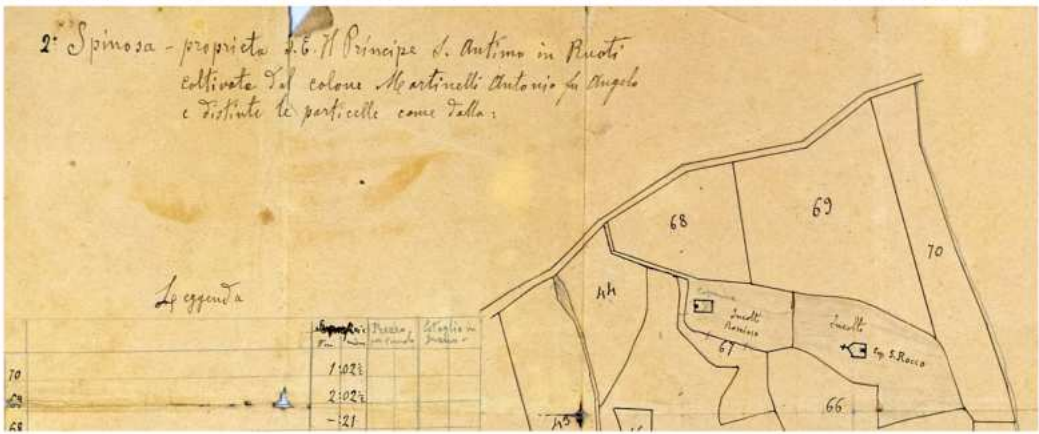 2° Spinosa - proprieta S. E. Il Principe S. Antimo in Ruoti
coltivate dal colono Martinelli Antonio fu Angelo
e distinte le particelle come dalla:
Leggenda
70 1:02½
69 2:02½
68 -:21
68
69
70
44
Incolti
67
Incolti
Cap. S. Rocco
66
45